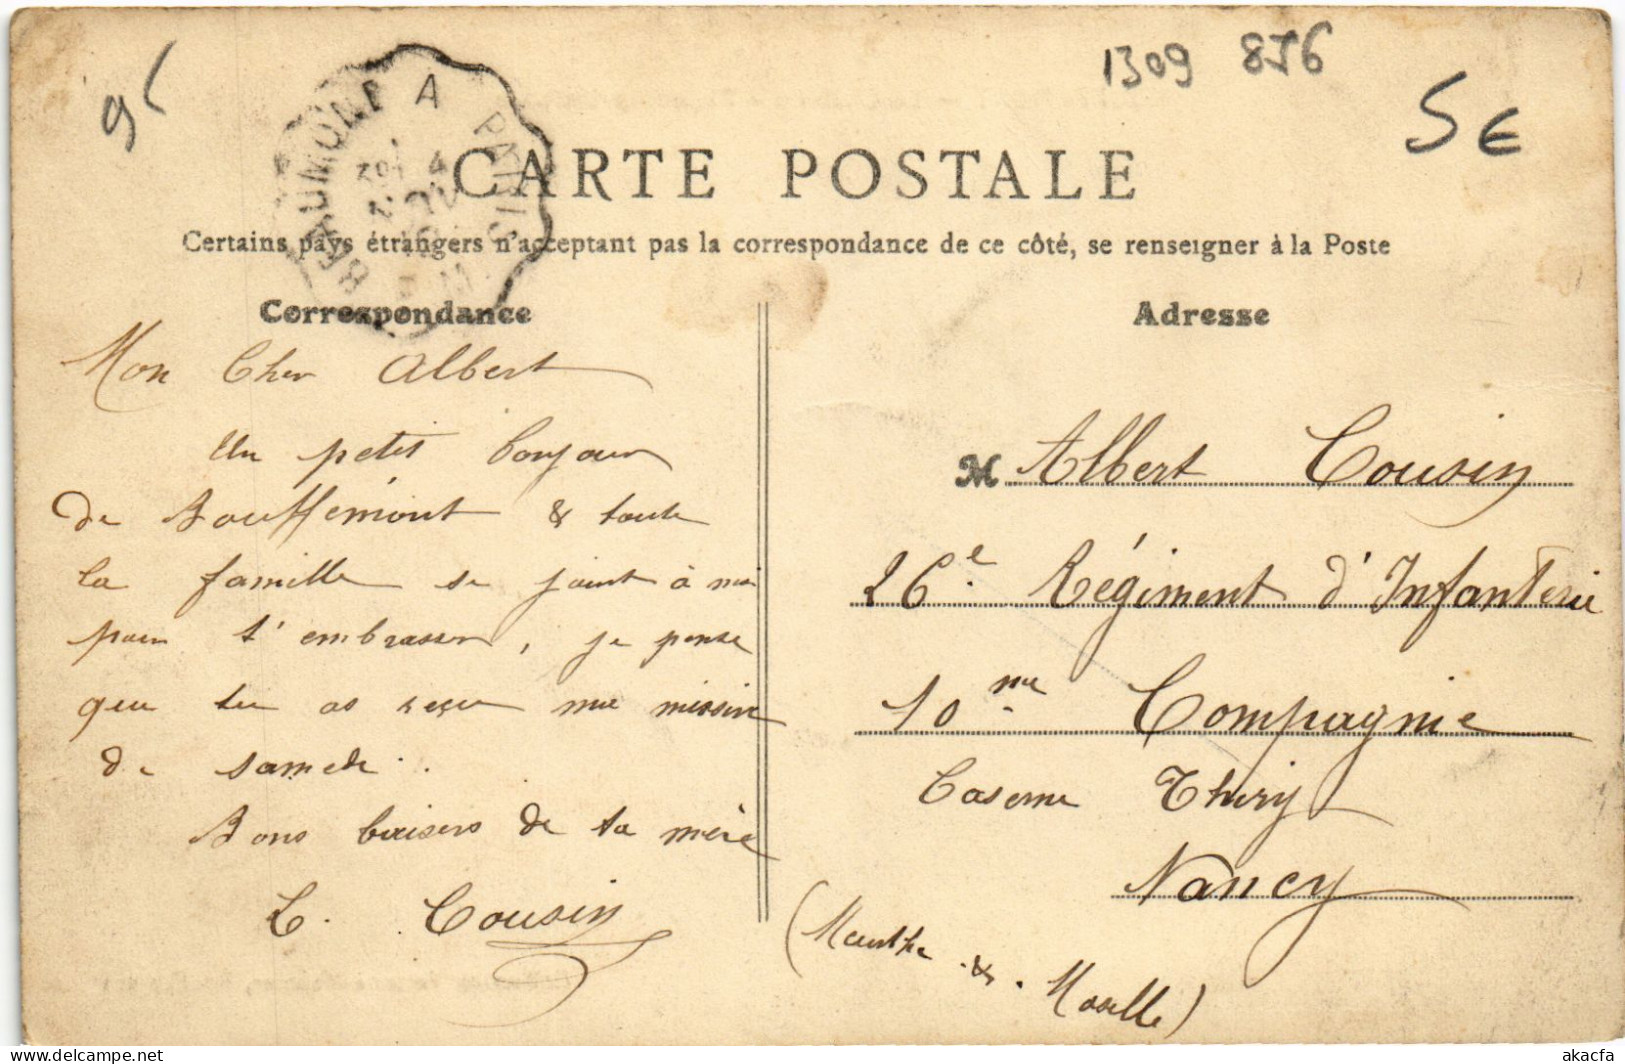 95
1309 876
5€
BEAUMONT A PARIS
CARTE POSTALE
Certains pays étrangers n'acceptant pas la correspondance de ce côté, se renseigner à la Poste
Correspondance
Mon Cher Albert
Un petit bonjour
de Bouffémont & toute
la famille se joint à moi
pour t'embrasser, je pense
que tu as reçu ma missive
de samedi.
Bons baisers de ta mère
L. Cousin
Adresse
M Albert Cousin
26e Régiment d'Infanterie
10me Compagnie
Caserne Thiry
Nancy
(Meurthe & Moselle)
delcampe.net
akacfa